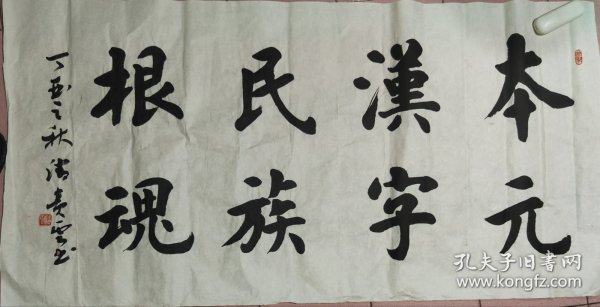 本元
漢字
民族
根魂
丁酉之秋
孔夫子旧书网
www.kongfz.com